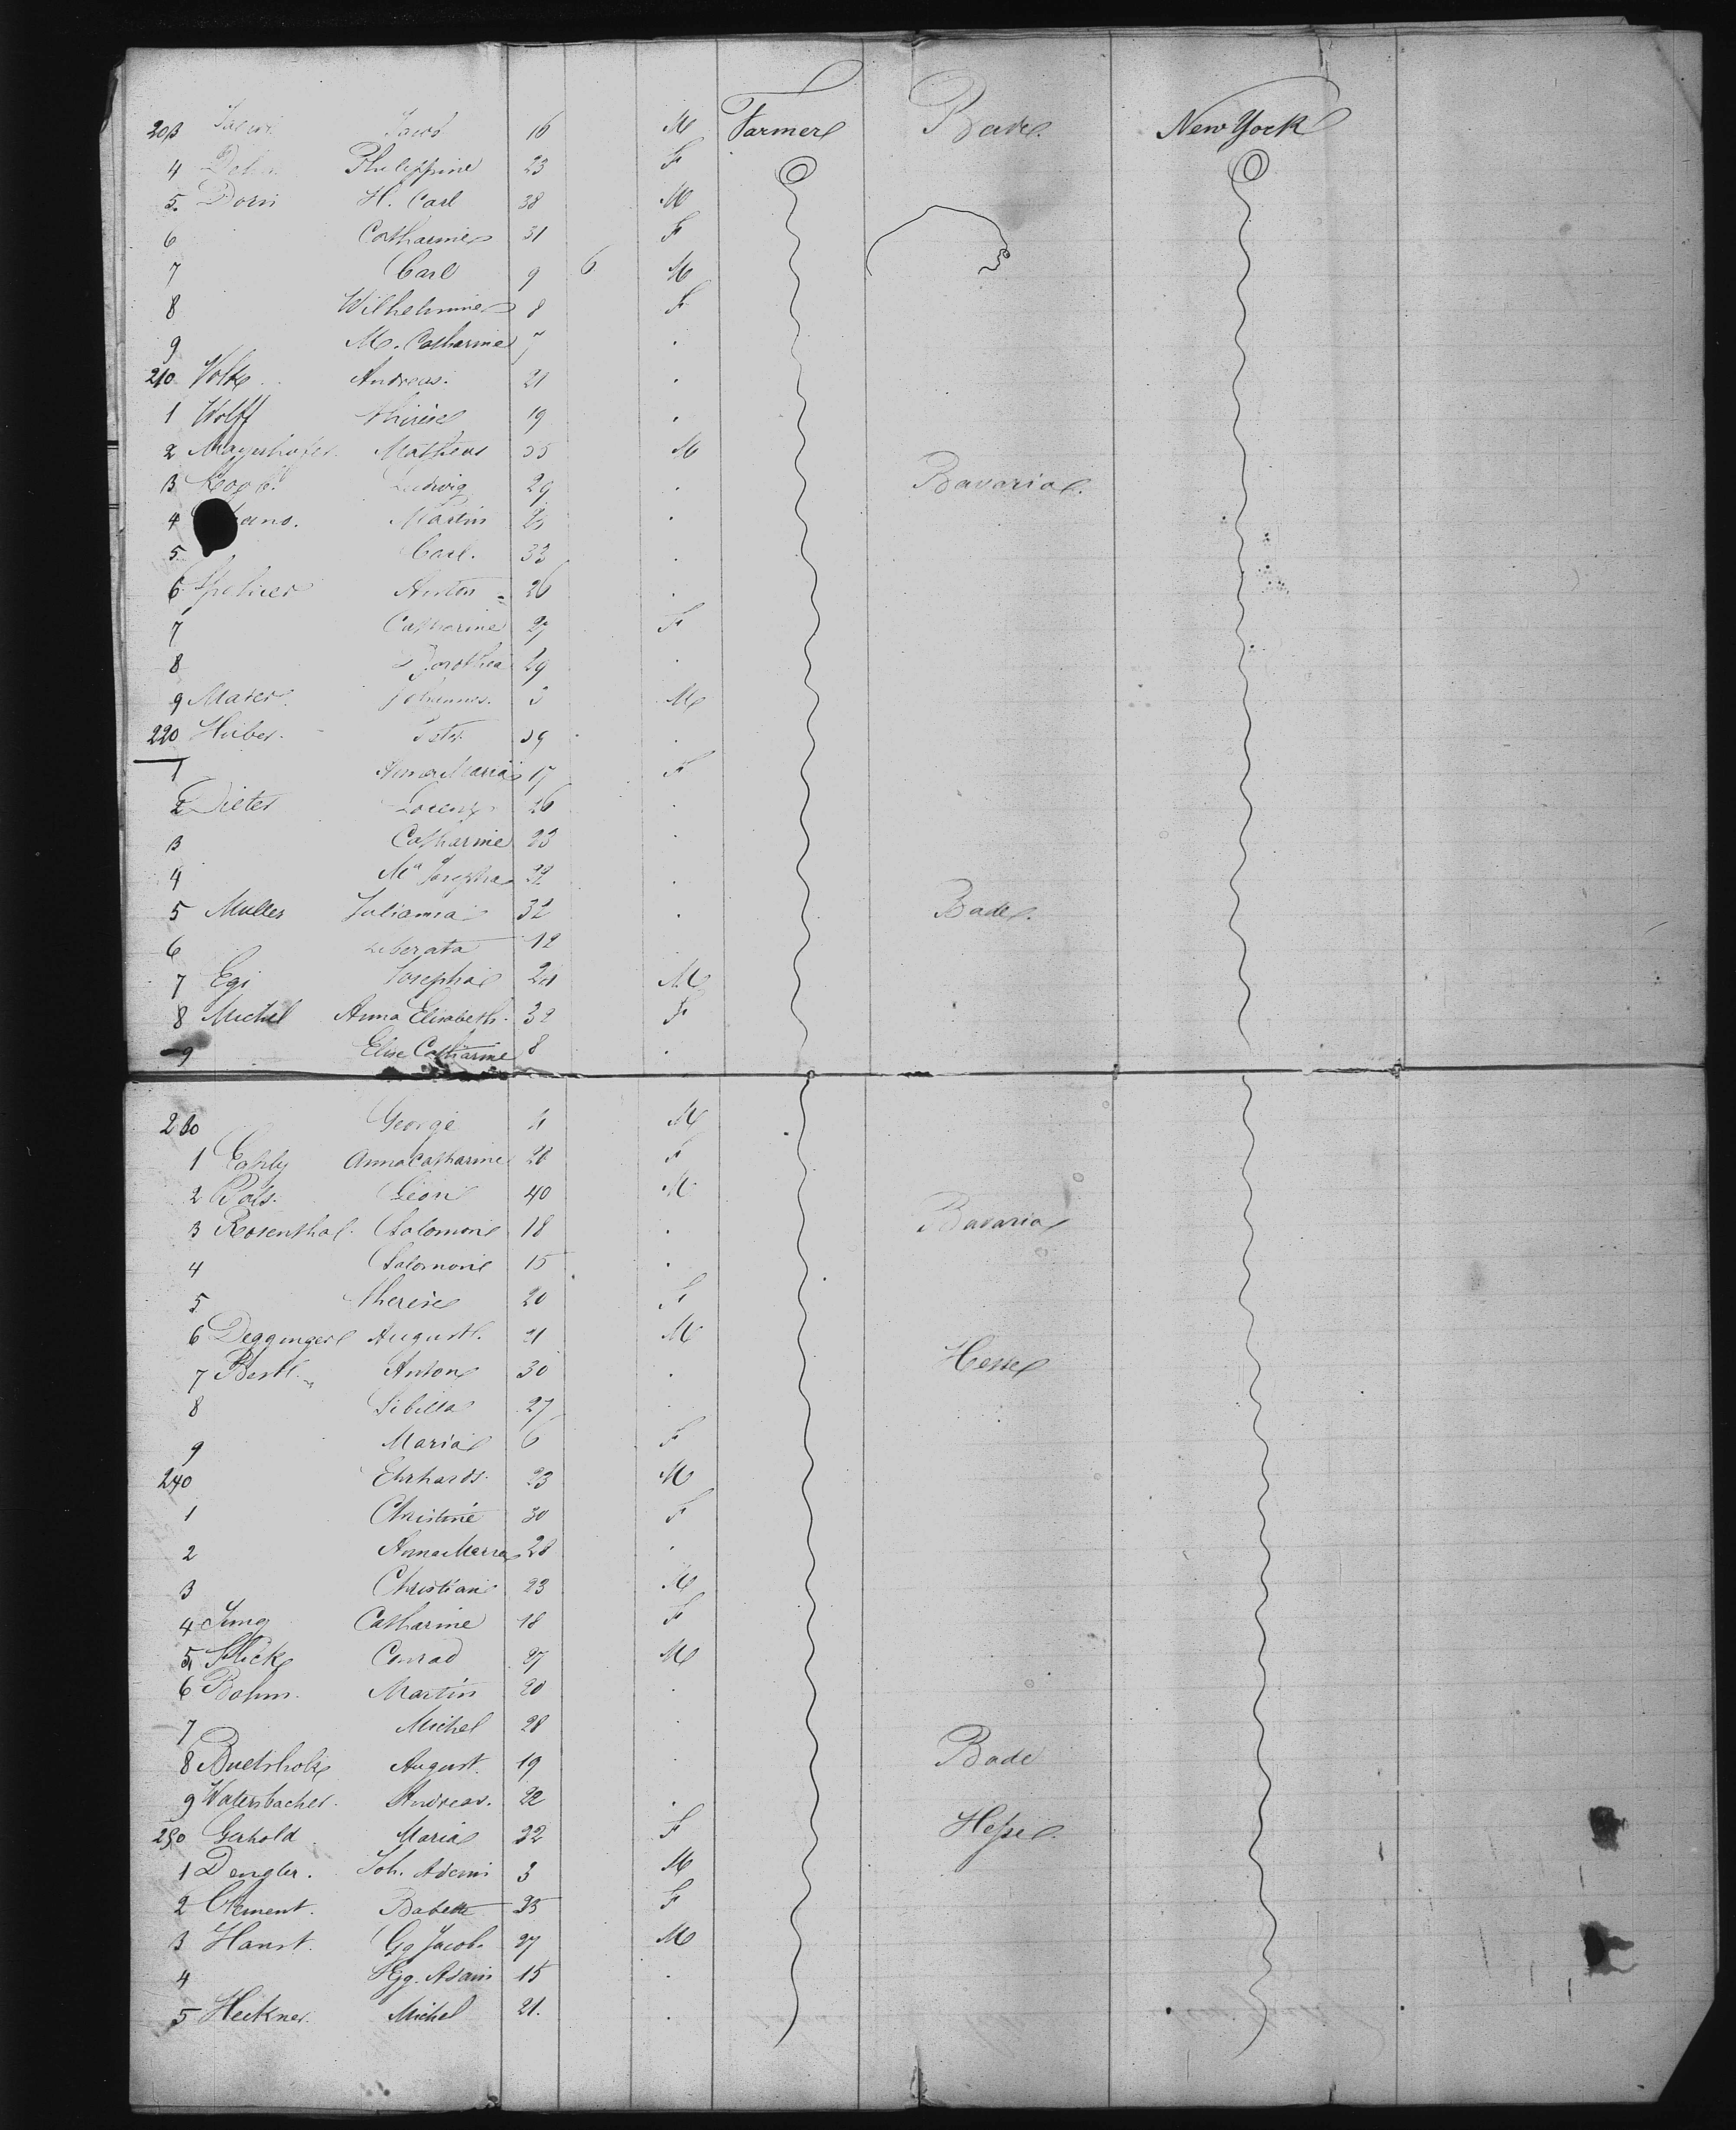 203 Jacob 16 M Farmer Bade. New York
4 Philippine 23 F
5. Dorn H. Carl 38 M
6 Catharine 31 F
7 Carl 9 6 M
8 Wilhelmine 8 F
9 M. Catharine 7 .
210 Volk Andreas. 21 .
1 Wolff thérèse 19 .
2 Mayerhofer Matheus 35 M
3 Kopp. Ludwig 29 . Bavaria.
4 Martin 25 .
5 Carl. 32 .
6 Anton 26 .
7 Catharine 27 F
8 Dorothea 29 .
9 Mader Johannes. 3 M
220 Huber. Peter 39 .
1 Anna Maria 17 F
2 Dieter Lorenz 26 .
3 Catharine 23 .
4 Ma Josepha 32 .
5 Muller Juliana 32 . Bade.
6 Liberata 12 .
7 Egi Josepha 24 M
8 Michel Anna Elisabeth. 32 F
9 Elise Catharine 8 .
230 George 4 M
1 Anna Catharine 28 F
2 Léon 40 M
3 Rosenthal. Salomon 18 . Bavaria
4 Salomon 15 .
5 thérèse 20 F
6 Degginger August. 21 M
7 Anton 30 . Hesse
8 Sibilla 27 .
9 Maria 6 F
240 Ehrhards. 23 M
1 Christine 30 F
2 Anna Maria 28 .
3 Christian 23 M
4 Jung Catharine 18 F
5 Conrad 27 M
6 Bohm. Martin 20 .
7 Michel 28 .
8 August. 19 . Bade
9 Watersbacher. Andreas. 22 .
250 Gerhold Maria 32 F Hesse.
1 Dengler. Joh. Adam 3 M
2 Clement. Babette 25 F
3 Hanst. Gg Jacob. 27 M
4 Gg. Adam 15 .
5 Heckner. Michel 21. .